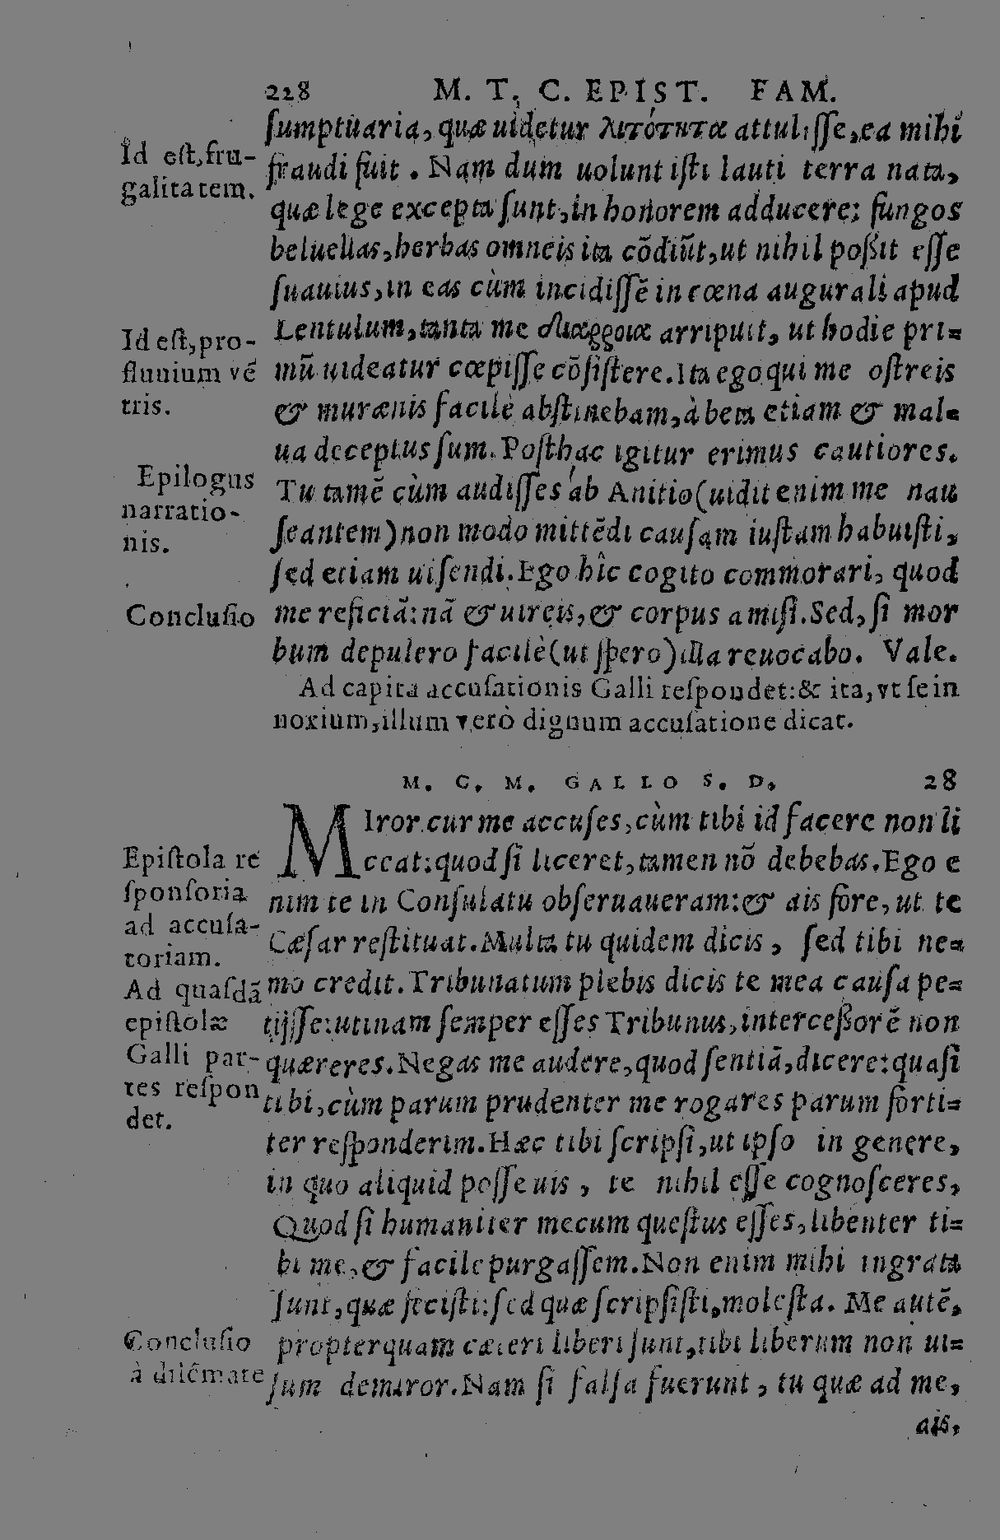 228 M. T. C. EPIST. FAM.
ſumptuaria, quæ uidetur λιτότητα attuliſſe, ea mihi
Id eſt, fru-
galitatem.
fraudi fuit. Nam dum uolunt iſti lauti terra nata,
quæ lege excepta ſunt, in honorem adducere: fungos
heluellas, herbas omneis ita cōdiūt, ut nihil poßit eſſe
ſuauius, in eas cùm incidiſſē in cœna augurali apud
Id eſt, pro-
fluuium vē
tris.
Lentulum, tanta me διάρροια arripuit, ut hodie pri=
mū uideatur cœpiſſe cōſiſtere. Ita ego qui me oſtreis
& murænis facilè abſtinebam, à beta etiam & mal=
ua deceptus ſum. Poſthac igitur erimus cautiores.
Epilogus
narratio-
nis.
Tu tamē cùm audiſſes ab Anitio (uidit enim me nau
ſeantem) non modo mittēdi cauſam iuſtam habuiſti,
ſed etiam uiſendi. Ego hîc cogito commorari, quod
Concluſio
me reficiā: nā & uireis, & corpus amiſi. Sed, ſi mor
bum depulero facilè (ut ſpero) illa reuocabo. Vale.
Ad capita accuſationis Galli reſpondet: & ita, vt ſe in
noxium, illum verò dignum accuſatione dicat.
M. C. M. GALLO S. D. 28
MIror cur me accuſes, cùm tibi id facere non li
Epiſtola re
ſponſoria
ad accuſa-
toriam.
ceat: quod ſi liceret, tamen nō debebas. Ego e
nim te in Conſulatu obſeruaueram: & ais fore, ut te
Cæſar reſtituat. Multa tu quidem dicis, ſed tibi ne=
Ad quaſdā
epiſtolæ
Galli par-
tes reſpon
det.
mo credit. Tribunatum plebis dicis te mea cauſa pe=
tijſſe: utinam ſemper eſſes Tribunus, interceßorē non
quæreres. Negas me audere, quod ſentiā, dicere: quaſi
tibi, cùm parum prudenter me rogares parum forti=
ter reſponderim. Hæc tibi ſcripſi, ut ipſo in genere,
in quo aliquid poſſe uis, te nihil eſſe cognoſceres,
Quod ſi humaniter mecum queſtus eſſes, libenter ti=
bi me, & facile purgaſſem. Non enim mihi ingrata
ſunt, quæ feciſti: ſed quæ ſcripſiſti, moleſta. Me autē,
Concluſio
à dilēmate
propter quam cæteri liberi ſunt, tibi liberum non ui=
ſum demiror. Nam ſi falſa fuerunt, tu quæ ad me,
ais,